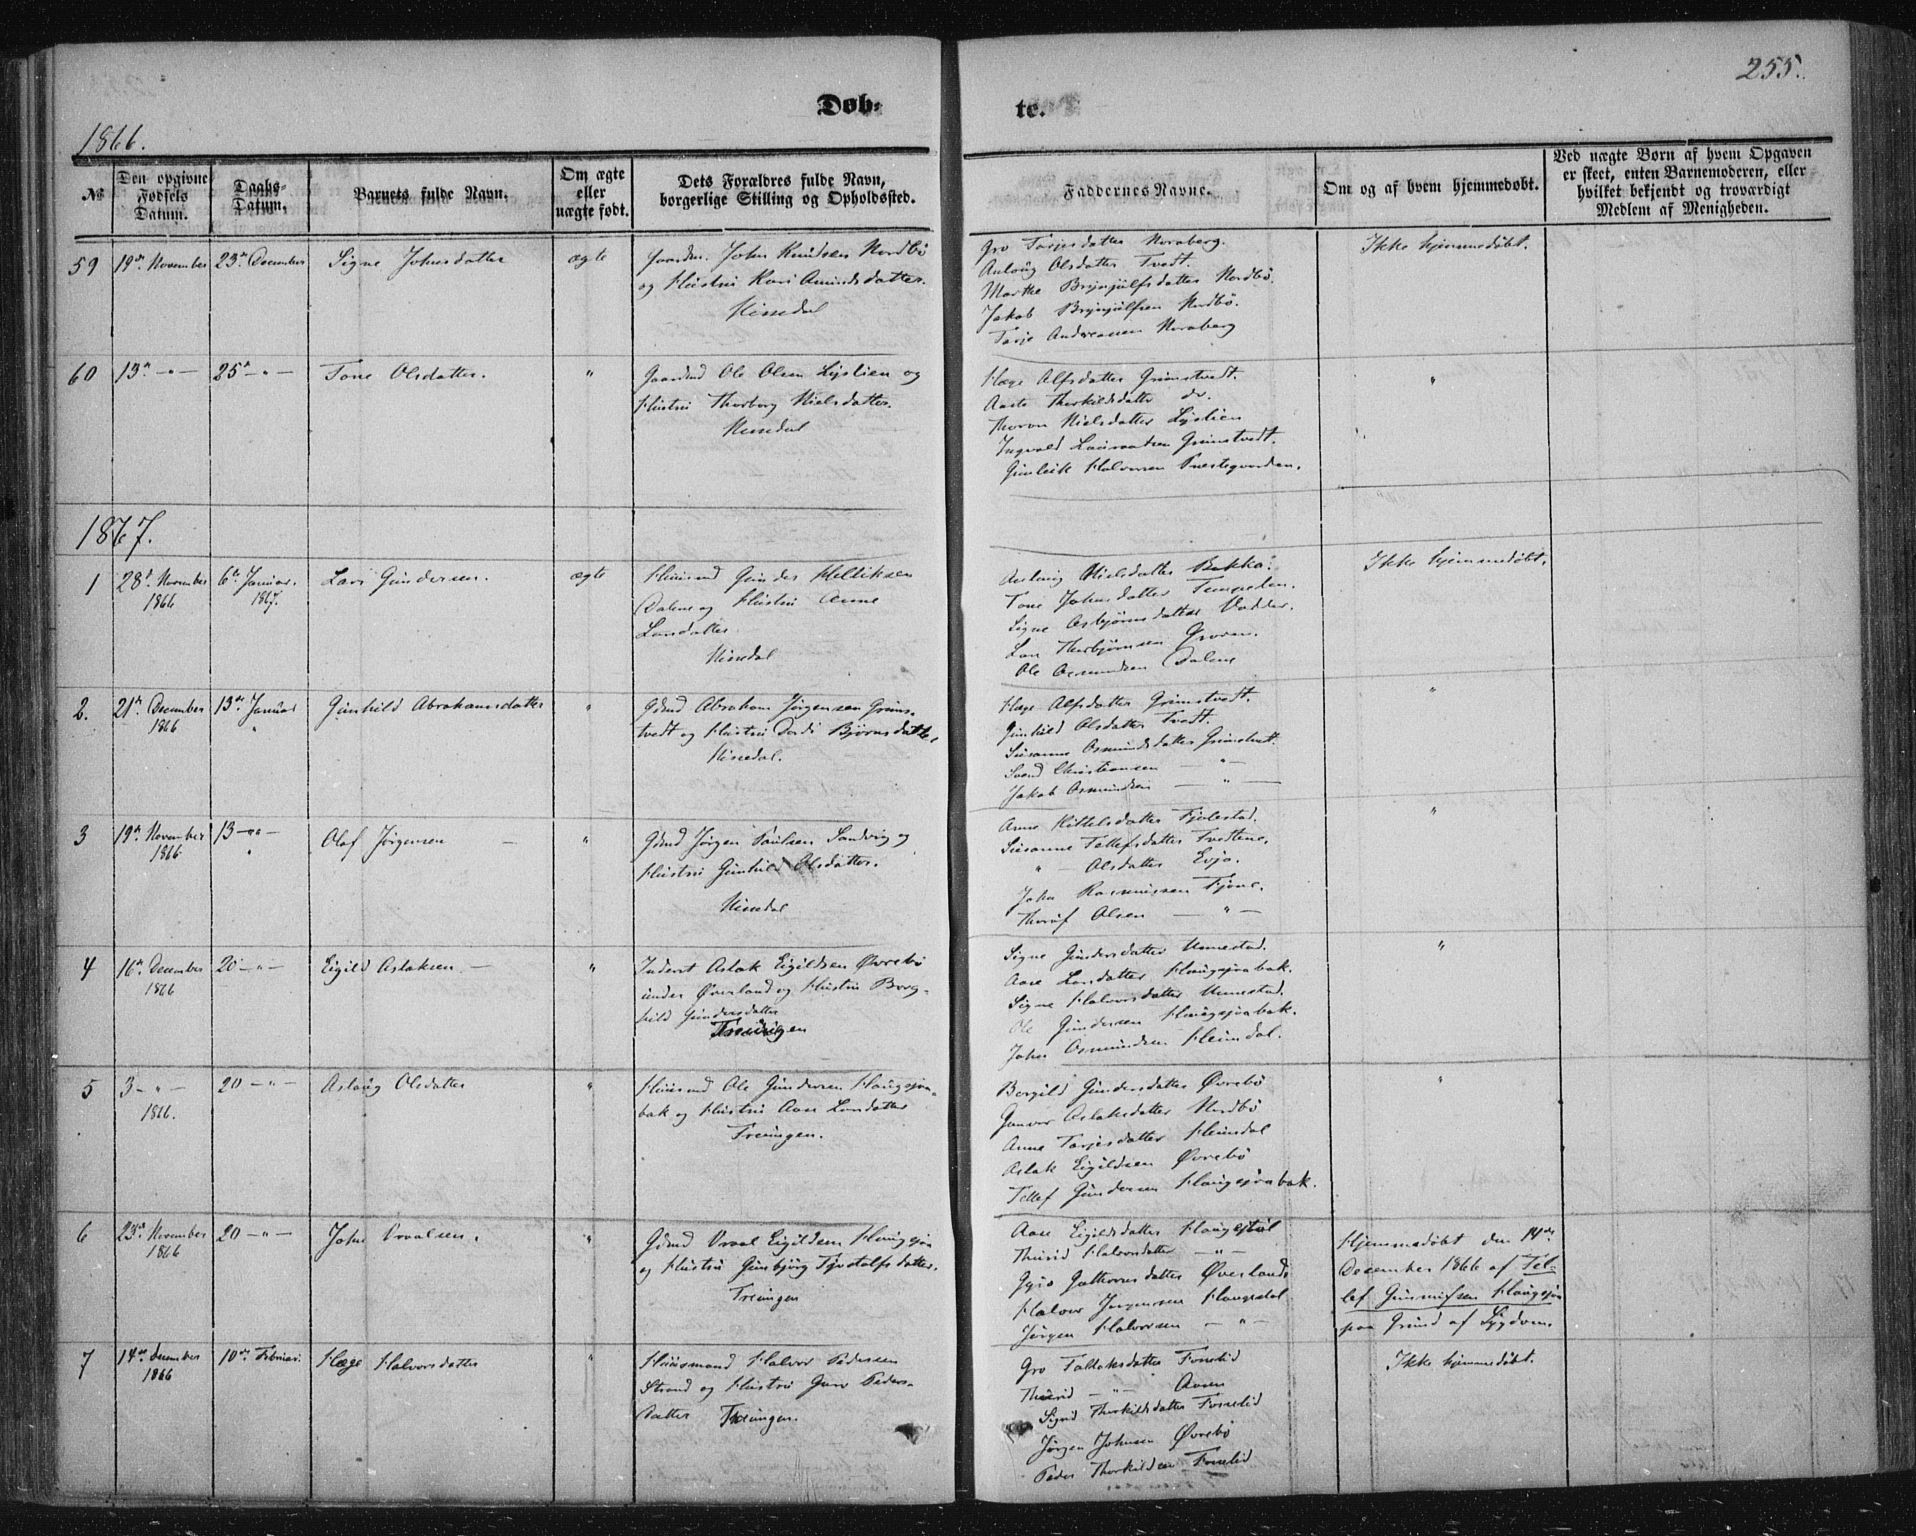 255.
Døb-
te.
1866.
№
Den opgivne Fødsels Datum.
Daabs-Datum.
Barnets fulde Navn.
Om ægte eller uægte født.
Dets Forældres fulde Navn, borgerlige Stilling og Opholdssted.
Faddernes Navne.
Om og af hvem hjemmedøbt.
Ved uægte Børn af hvem Opgaven er skeet, enten Barnemoderen, eller hvilket bekjendt og troværdigt Medlem af Menigheden.
59
19de November
23de December
Signe Johnsdatter
ægte
Gaardm. John Knudsen Nordbø
og Hustru Kari Amundsdatter.
Nissedal
Gro Tarjesdatter Noraberg.
Aslaug Olsdatter Tvedt.
Marthe Brynjulfsdatter Nordbø.
Jakob Brynjulfsen Nordbø.
Tarje Andreassen Noraberg
Ikke hjemmedøbt.
60
13de -"-
25de -"-
Tone Olsdatter.
"
Gaardmd Ole Olsen Lystien og
Hustru Thorborg Nielsdatter.
Nissedal
Hæge Alfsdatter Grimstvedt.
Aaste Thorkildsdatter do.
Thoron Nielsdatter Lystien
Ingvald Lauraatsen Grimstvedt.
Gunleik Halvorsen Præstegaarden.
"
1867.
1
28de November
1866
6te Januar.
1867.
Lars Gundersen.
ægte
Huusmd Gunder Kittilsen
Dalene og Hustru Anne
Larsdatter
Nissedal
Aslaug Nielsdatter Bakka.
Tone Johnsdatter Tempelen.
Signe Asbjørnsdatter Vadder.
Lars Thorbjørnsen Groven.
Ole Osmundsen Dalene
Ikke hjemmedøbt.
2.
21de December
1866
13de Januar
"
Gunhild Abrahamsdatter
"
Gdmd Abraham Jørgensen Grims-
tvedt og Hustru Dordi Bjørnsdatter,
Nissedal.
Hæge Alfsdatter Grimstvedt.
Gunhild Olsdatter Tvedt.
Susanne Osmundsdatter Grimstvedt.
Svend Christiansen -"-
Jakob Osmundsen -"-
"
3
19de November
1866
13 -"-
"
Olaf Jørgensen
"
Gdmd Jørgen Poulsen Sandvig og
Hustru Gunhild Olsdatter.
Nissedal
Anne Kittelsdatter Fjelestad.
Susanne Tellefsdatter Tvedtene.
" - Olsdatter Evja.
John Rasmussen Fjone.
Thoruf Olsen -"-
"
4
16de December
1866
20 -"-
Eigild Aslaksen
"
Inderst Aslak Eigildsen Øvrebø
under Øverland og Hustru Borg-
hild Gundersdatter
Treungen
Signe Gundersdatter Unnestad.
Aase Larsdatter Haugsjøabak.
Signe Halvorsdatter Unnestad.
Ole Gundersen Haugsjøabak.
John Osmundsen Heimdal.
"
5
3 -"-
1866.
20 -"-
Aslaug Olsdatter
"
Huusmd Ole Gundersen Haugsjøa-
bak og Hustru Aase Larsdatter
Treungen.
Borgild Gundersdatter Øvrebø
Gunvor Aslaksdatter Nordbø
Anne Tarjesdatter Heimdal
Aslak Eigildsen Øvrebø
Tellef Gundersen Haugsjøabak.
"
6
23de November
1866
20 -"-
John Vraalsen.
"
Gdmd Vraal Eigildsen Haugsjøa
og Hustru Gunbjørg Tjøstolfsdatter.
Treungen
Aase Eigildsdatter Haugestøl
Thurid Halvorsdatter -"-
Gyro Guthormsdatter Øverlands
Halvor Jørgensen Haugestøl
Jørgen Halvorsen -"-
Hjemmedøbt den 14de
December 1866 af Tel-
lef Gunnufsen Haugsjøa
paa Grund af Sygdom.
7
14de December
1866
10de Februar.
Hæge Halvorsdatter
"
Huusmand Halvor Pedersen
Strand og Hustru Guro Peders-
datter Treungen.
Gro Tallaksdatter Fosselid
Thurid -"- Aasen
Sigrid Thorkildsdatter Fosselid
Jørgen Johnsen Øvrebø
Peder Thorkildsen Fosselid
Ikke hjemmedøbt.